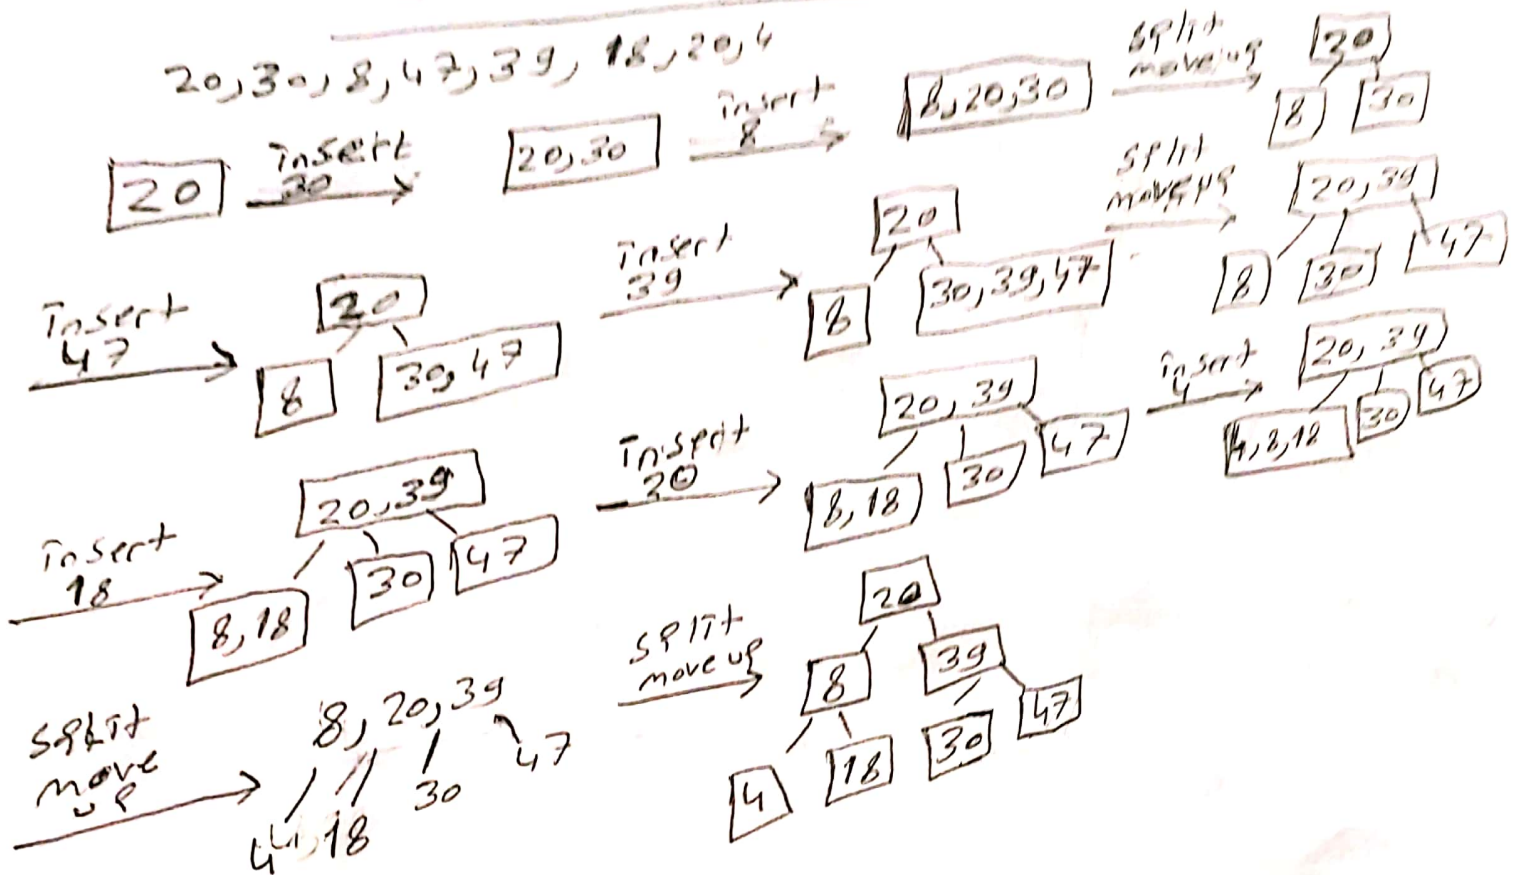 20,30,8,47,39,18,20,4
20
insert
30
20,30
insert
8
8,20,30
split
move up
20
8
30
insert
47
20
8
30,47
insert
39
20
8
30,39,47
split
move up
20,39
8
30
47
insert
18
20,39
8,18
30
47
insert
20
20,39
8,18
30
47
insert
4
20,39
4,8,18
30
47
split
move
up
8,20,39
4
18
30
47
split
move up
20
8
39
4
18
30
47